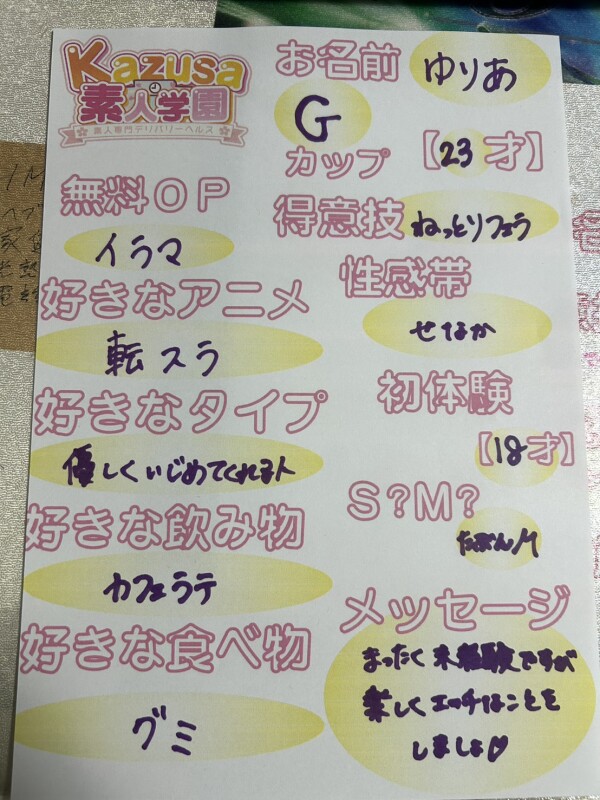 Kazusa
素人学園
素人専門デリバリーヘルス
お名前 ゆりあ
G
カップ 【23才】
無料OP
イラマ
得意技 ねっとりフェラ
好きなアニメ
転スラ
性感帯
せなか
好きなタイプ
優しくいじめてくれる人
初体験
【18才】
好きな飲み物
カフェラテ
S?M?
たぶんM
好きな食べ物
グミ
メッセージ
まったく未経験ですが
楽しくエッチなことを
しましょ♡